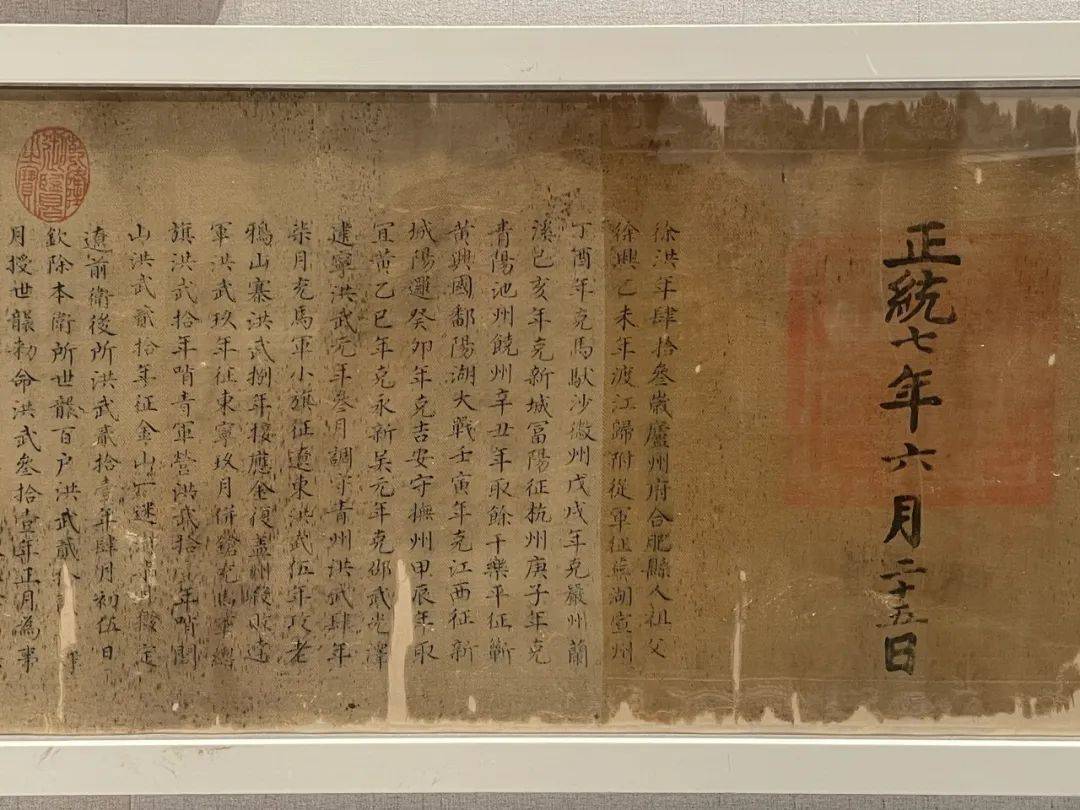 正統七年六月二十五日
徐洪年肆拾叁歲廬州府合肥縣人祖父
徐興乙未年渡江歸附從軍征蕪湖宣州
丁酉年克馬馱沙徽州戊戌年克嚴州蘭
溪己亥年克新城富陽征杭州庚子年克
青陽池州饒州辛丑年取餘干樂平征蘄
黄興國鄱陽湖大戰壬寅年克江西征新
城陽邏癸卯年克吉安守撫州甲辰年取
宜黄乙巳年克永新吴元年克邵武光澤
建寧洪武元年叁月調守青州洪武肆年
柒月充馬軍小旗征遼東洪武伍年攻老
鴉山寨洪武捌年接應金復盖州
軍洪武玖年征東寧玖月併鎗充馬軍總
旗洪武拾年哨青軍營洪武拾年哨
山洪武貳拾年征金山定
遼前衛後所洪武貳拾壹年肆月初伍日
欽除本衛所世襲百户洪武貳
月授世襲勑命洪武叁拾壹年正月為事